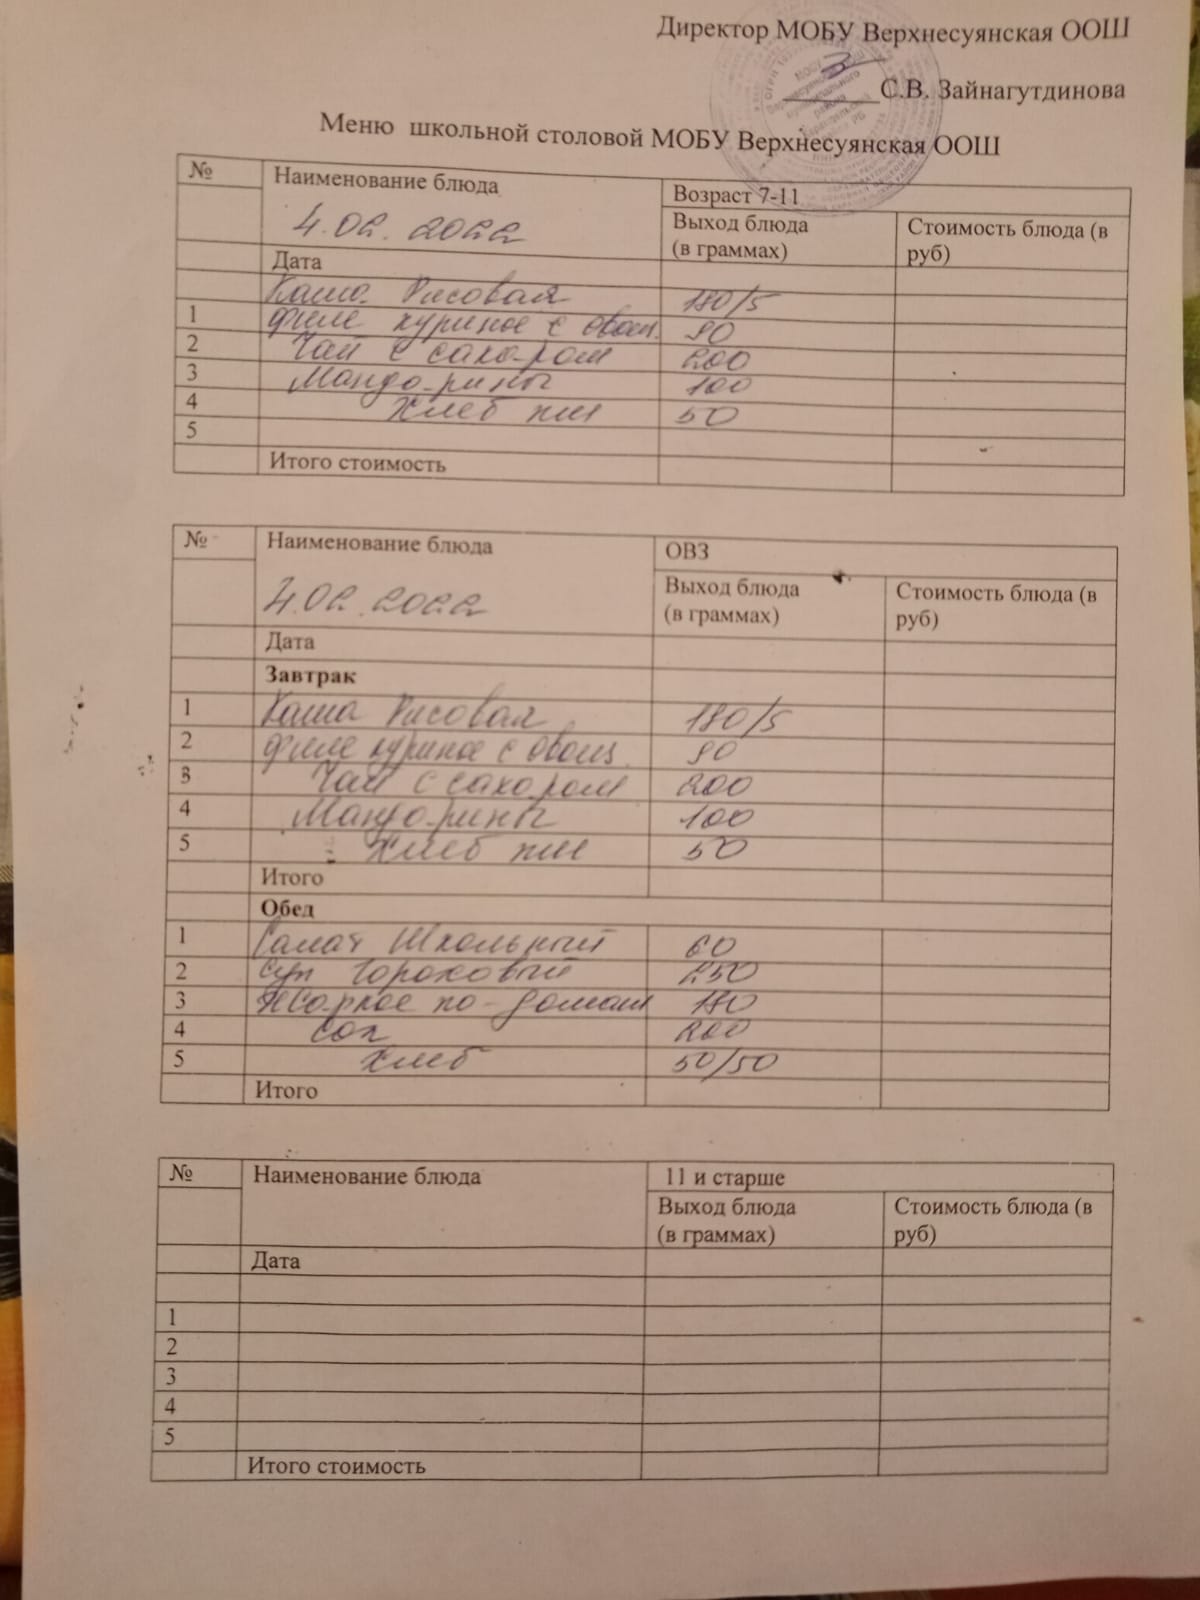 Директор МОБУ Верхнесуянская ООШ
С.В. Зайнагутдинова
Меню школьной столовой МОБУ Верхнесуянская ООШ
№ Наименование блюда Возраст 7-11
4.02.2022 Выход блюда (в граммах) Стоимость блюда (в руб)
Дата
Каша Рисовая 180/5
1 филе куриное с овощ. 90
2 Чай с сахаром 200
3 Мандарины 100
4 Хлеб пш 50
5
Итого стоимость
№ Наименование блюда ОВЗ
4.02.2022 Выход блюда (в граммах) Стоимость блюда (в руб)
Дата
Завтрак
1 Каша Рисовая 180/5
2 филе куриное с овощ. 90
3 Чай с сахаром 200
4 Мандарины 100
5 Хлеб пш 50
Итого
Обед
1 Салат Школьный 60
2 Суп Гороховый 250
3 Жаркое по-домаш 180
4 Сок 200
5 Хлеб 50/50
Итого
№ Наименование блюда 11 и старше
Выход блюда (в граммах) Стоимость блюда (в руб)
Дата
1
2
3
4
5
Итого стоимость